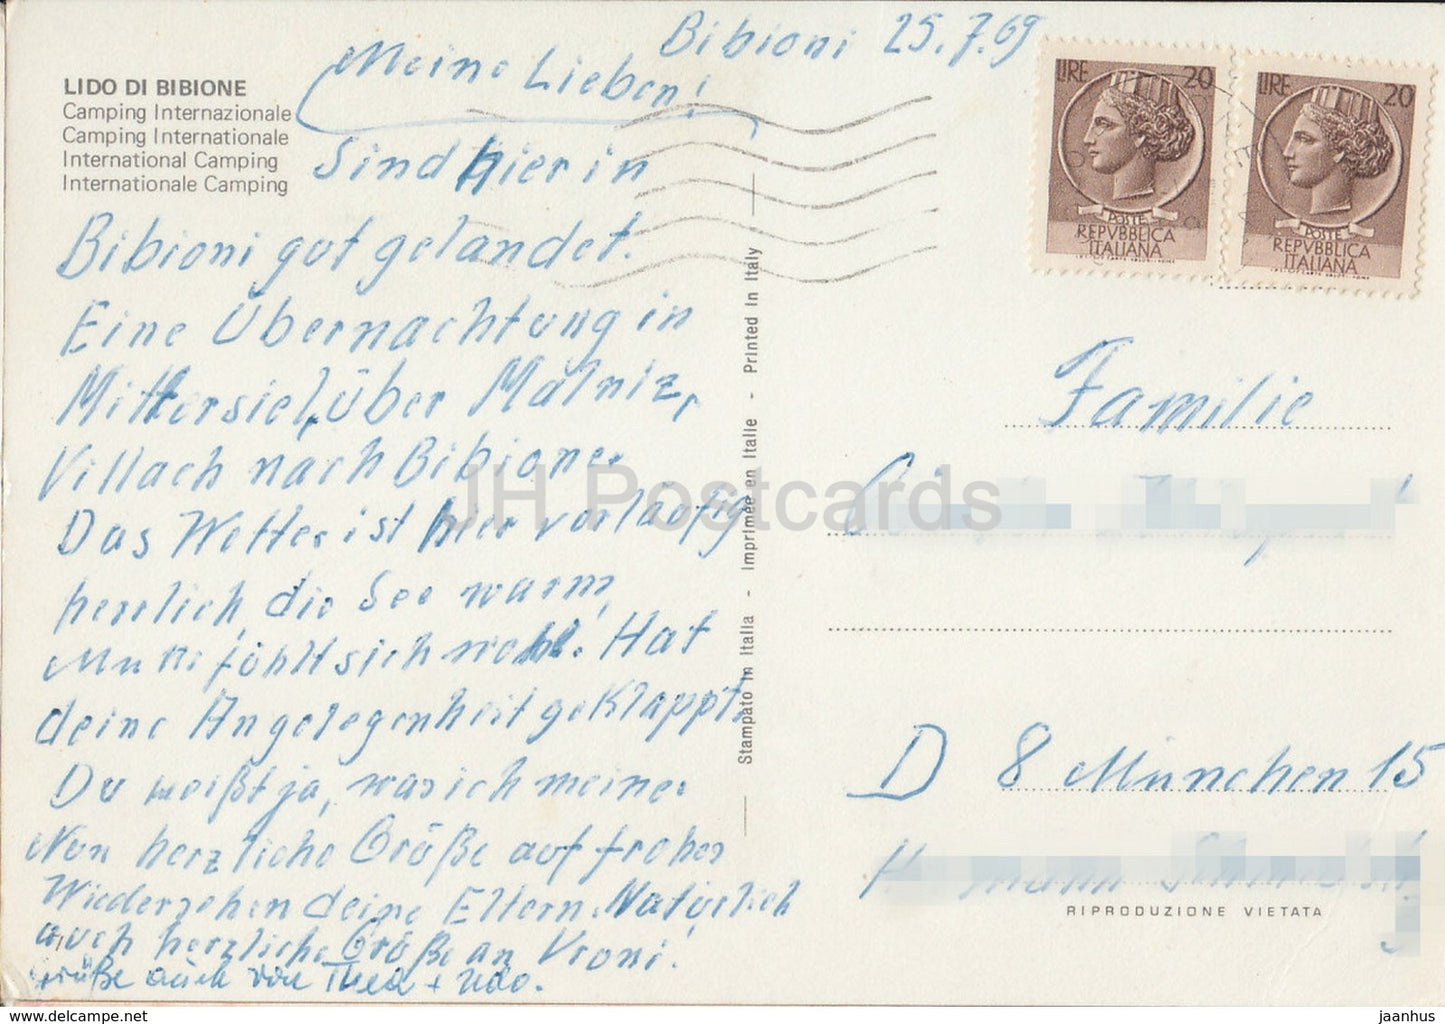 LIDO DI BIBIONE
Camping Internazionale
Camping Internationale
International Camping
Internationale Camping
Bibioni 25.7.69
Meine Lieben!
Sind hier in
Bibioni gut gelandet.
Eine Übernachtung in
Mittersiel, über Malniz,
Villach nach Bibione.
Das Wetter ist hier vorläufig
herrlich, die See warm,
Mutti fühlt sich wohl. Hat
deine Angelegenheit geklappt.
Du weißt ja, was ich meine.
Nun herzliche Grüße auf frohes
Wiedersehen deine Eltern. Natürlich
auch herzliche Grüße an Vroni!
Grüße auch von Thea + Udo.
Stampato in Italia - Imprimée en Italie - Printed in Italy
LIRE 20
POSTE
REPVBBLICA
ITALIANA
LIRE 20
POSTE
REPVBBLICA
ITALIANA
Familie
D 8 München 15
RIPRODUZIONE VIETATA
JH Postcards
www.delcampe.net
jaanhus